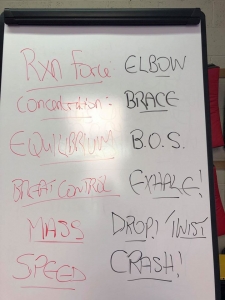 RXN Force: ELBOW
Concentration: BRACE
EQUILIBRIUM B.O.S.
BREATCONTROL EXHALE!
MASS DROP!/TWIST
SPEED CRASH!